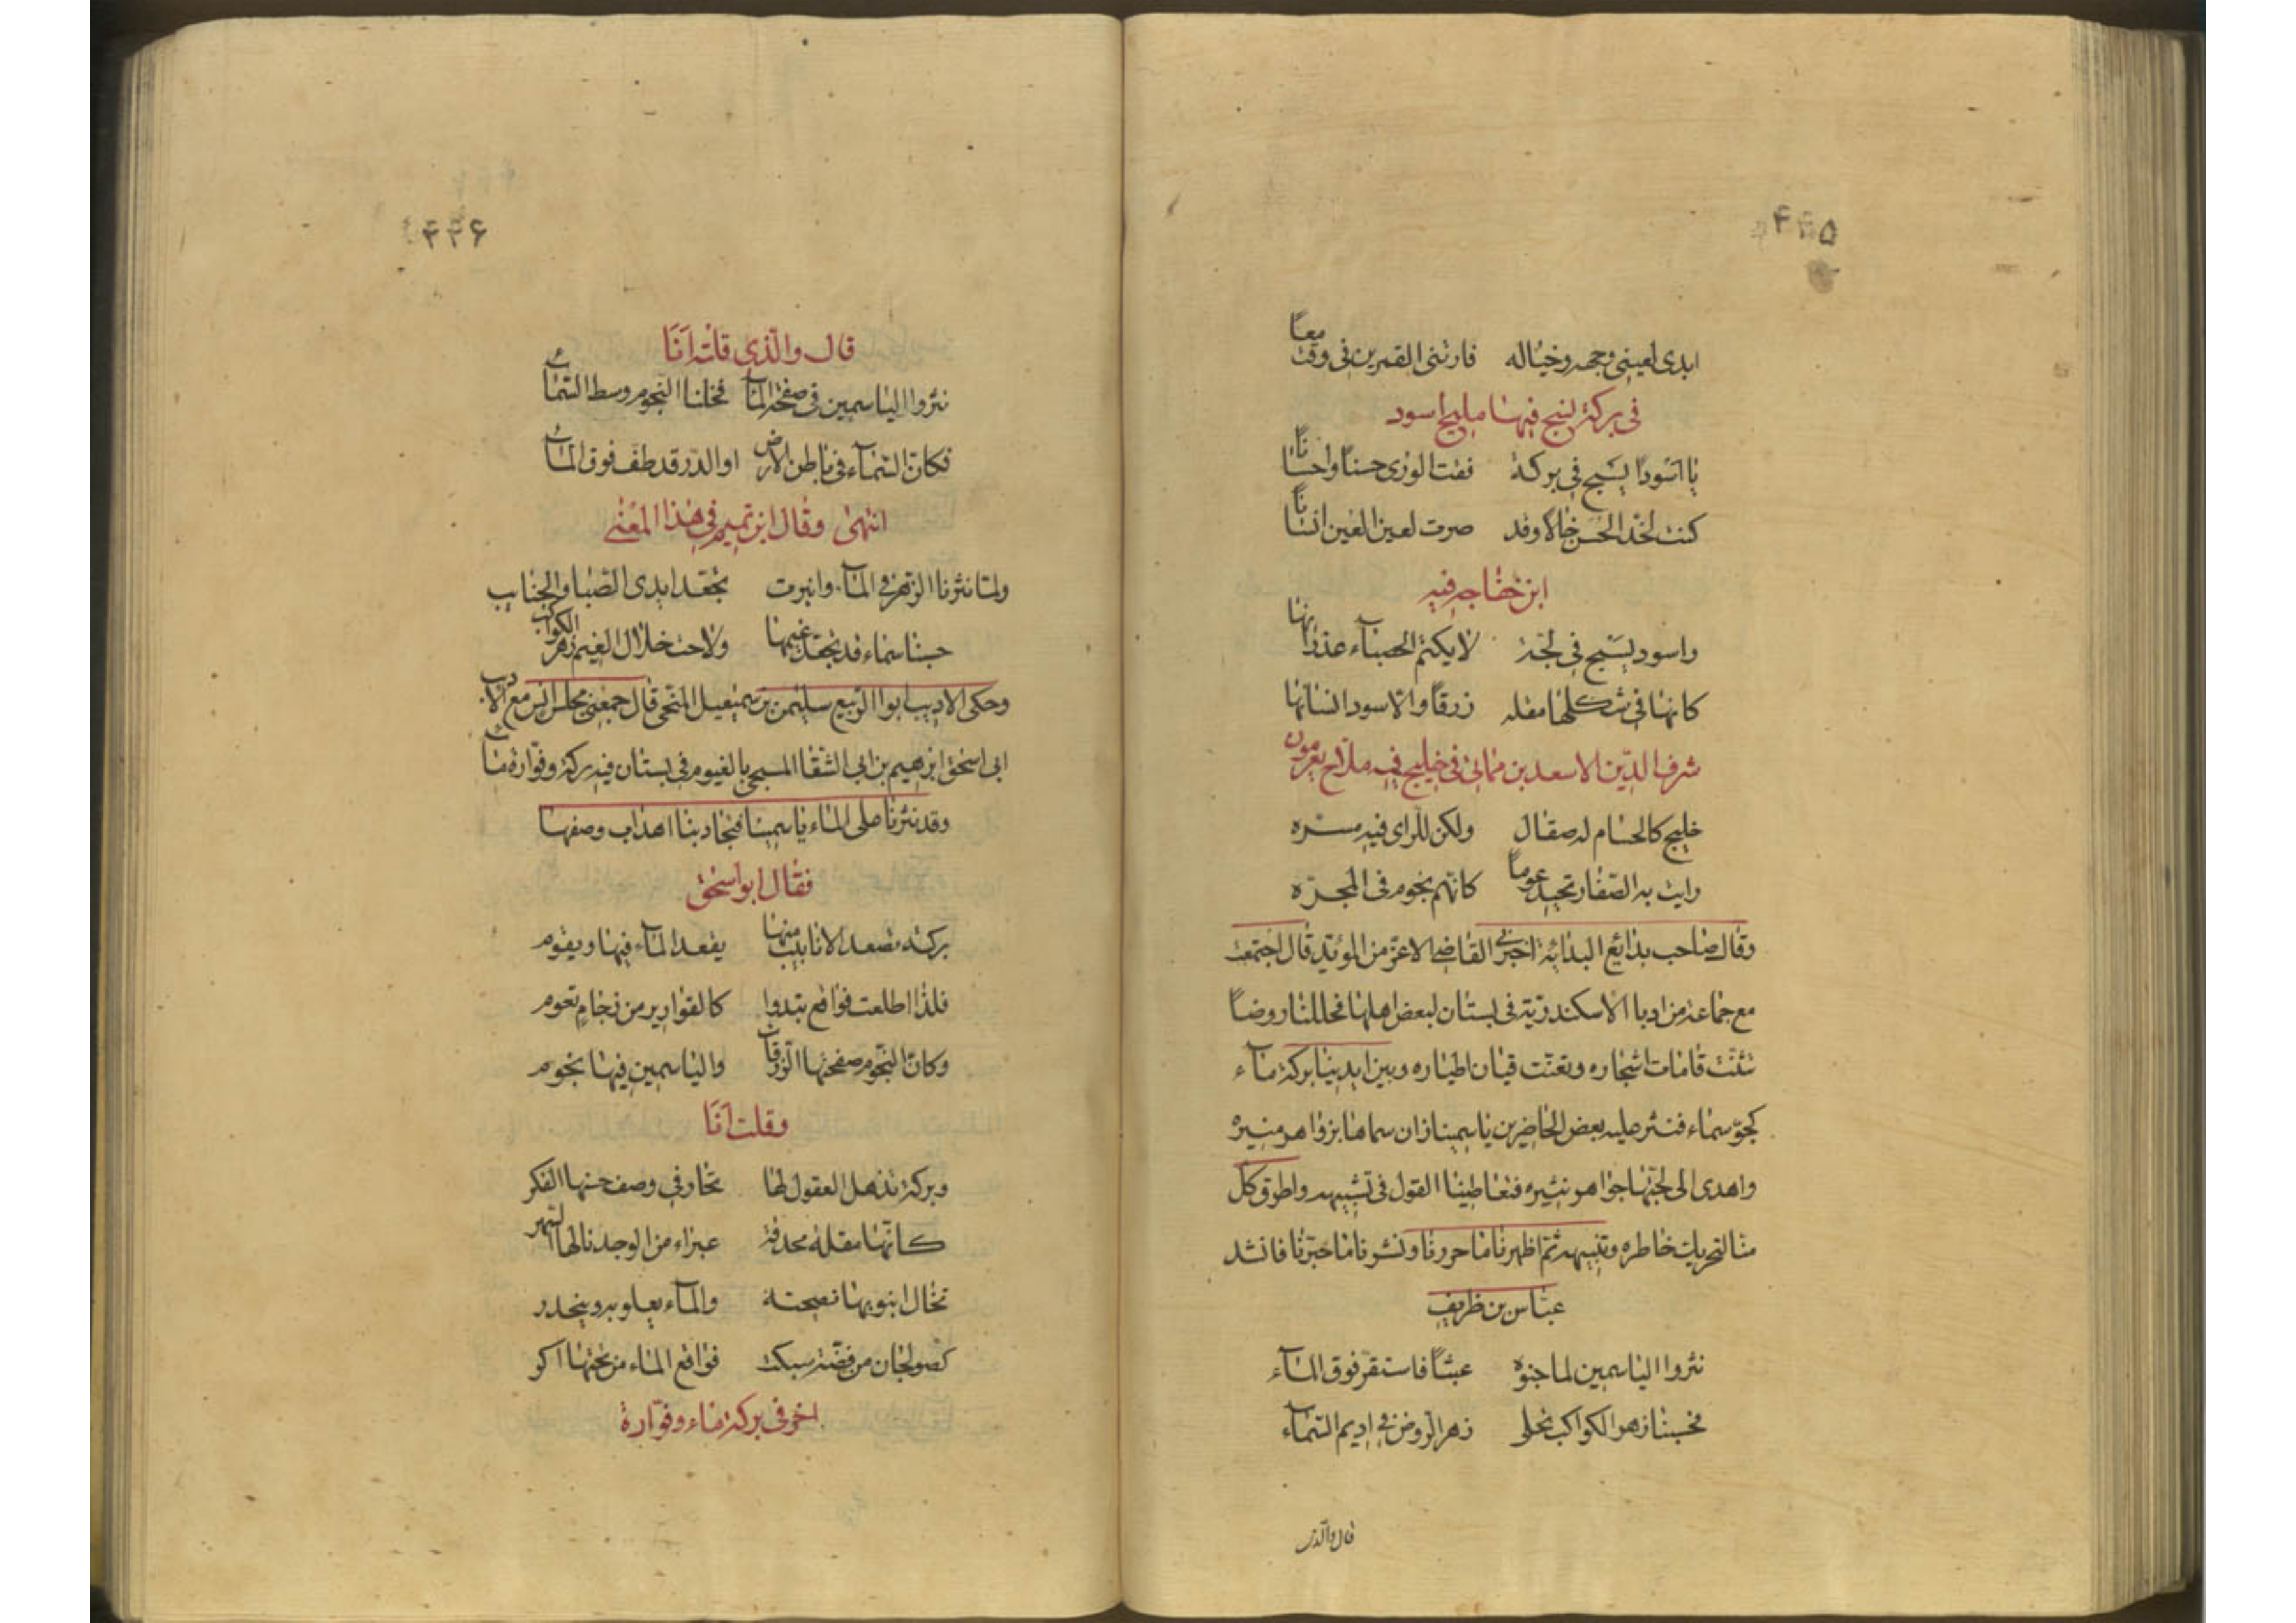 ۴۴۵
ابدى لعينى وجهه وخياله فارتنى القمرين فى وقت معاً
فى بركة يسبح فيها مليح اسود
يا اسودا يسبح فى بركة فقت الورى حسنا واحسانا
كنت لخد الحسن خالا وقد صرت لعين العين انسانا
ابن خفاجه فيه
واسود يسبح فى لجة لا يكتم الحصباء غدرانها
كانها فى شكلها مقله زرقا والاسود انسانها
شرف الدين الاسعد بن مماتى فى خليج فيه ملاح يعومون
خليج كالحسام له صقال ولكن للراى فيه مسره
رايت به الصغار تجيد عوماً كانهم نجوم فى المجره
وقال صاحب بدائع البدائه اخبرنى القاضى الاعز من المؤيد قال اجتمعت
مع جماعة من ادبا الاسكندرية فى بستان لبعض اهلها فحللنا روضاً
تثنت قامات اشجاره وتغنت قيان اطياره وبين ايدينا بركة ماء
كجو سماء فنثر عليه بعض الحاضرين ياسمينا زان سماها بزواهر منيره
واهدى الى لجتها جواهر نثيره فتعاطينا القول فى تشبيهه واطرق كل
منا لتحريك خاطره وتنبيهه ثم اظهرنا ما حررنا ونشرنا ما حبرنا فانشد
عباس بن ظريف
نثروا الياسمين لما جنوه عبثاً فاستقر فوق الماء
فحسبنا زهر الكواكب تحلى زهر الروض فى اديم السماء
قال والذى
۴۴۶
قال والذى قلته انا
نثروا الياسمين فى صفحة الماء فخلنا النجوم وسط السماء
فكان السماء فى باطن الارض او الدر قد طف فوق الماء
انتهى وقال ابن تميم فى هذا المعنى
ولما نثرنا الزهر فى الماء وانبرت بجعد ايدى الصبا والجنايب
حسبنا سماء قد تجعد غيمها ولاحت خلال الغيم زهر الكواكب
وحكى الاديب ابوا الربيع سليمن بن سمعيل قال جمعنى مجلس انس مع الاديب
ابى اسحق ابرهيم بن ابى الشقا المسيحى بالفيوم فى بستان فيه بركة وفوارة ماء
وقد نثرنا على الماء ياسمينا فتجاذبنا اهداب وصفها
فقال ابو اسحق
بركة تصعد الانابيب منها يقعد الماء فيها ويقوم
فلذا اطلعت فواقع تبدوا كالقوارير من زجاج تعوم
وكان النجوم صفحتها الزرقاء والياسمين فيها نجوم
وقلت انا
وبركة تذهل العقول لها تحار فى وصف حسنها الفكر
كانها مقلة محدقة عبراء من الوجد نالها السهر
تخال انبوبها نصبحته والماء يعلو به وينحدر
كصولجان من فضة سبكت فواقع الماء من تحتها اكر
اخر فى بركة ماء وفوارة